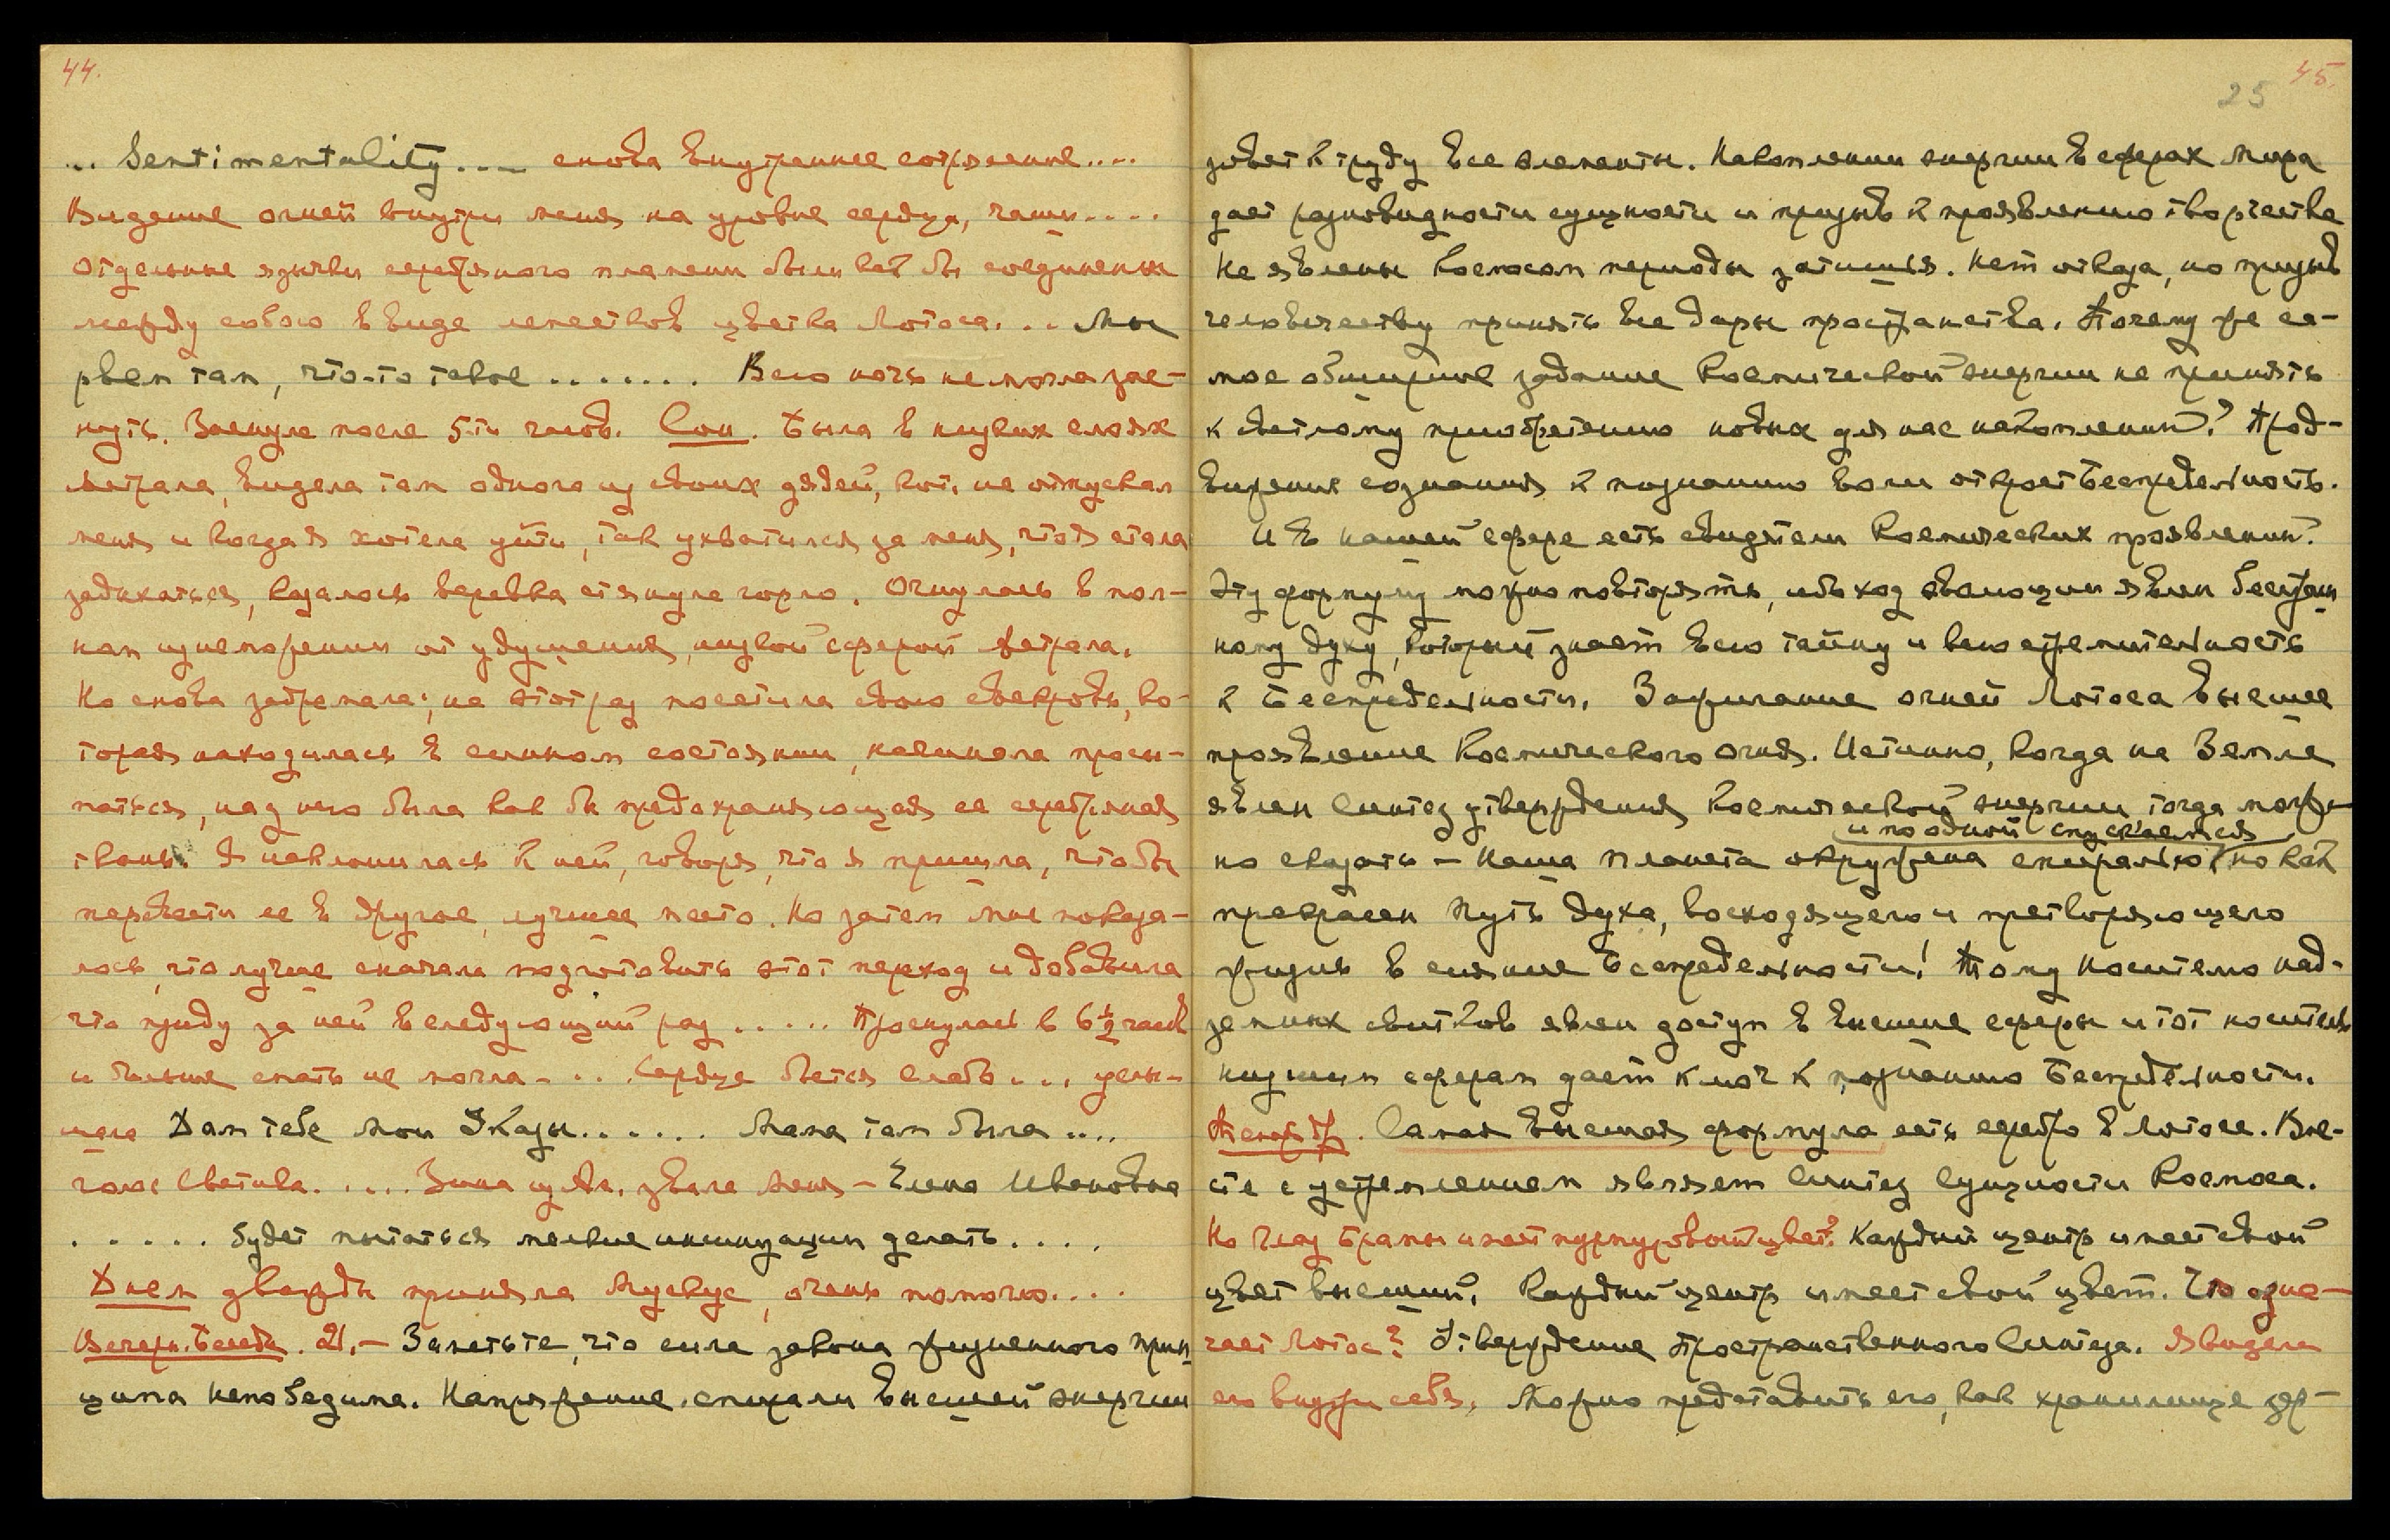 44.
... Sentimentality.... снова внутреннее сотрясение....
Видение огней внутри меня на уровне сердца, чаши....
Отдельные язычки серебряного пламени были как бы соединены
между собою в виде лепестков цветка Лотоса... Мы
рвем там, что-то такое ....... Всю ночь не могла зас-
нуть. Заснула после 5-ти часов. Сон. Была в низких слоях
Астрала, видела там одного из своих дядей, кот. не отпускал
меня и когда я хотела уйти, так ухватился за меня, что я стала
задыхаться, казалось веревка стянула горло. Очнулась в пол-
ном изнеможении от удушения, низкой сферой Астрала.
Но снова задремала; на этот раз посетила свою свекровь, ко-
торая находилась в сонном состоянии, начинала просы-
паться, над нею была как бы предохраняющая ее серебряная
ткань. Я наклонилась к ней, говоря, что я пришла, чтобы
перевести ее в другое, лучшее место. Но затем мне показа-
лось, что лучше сначала подготовить этот переход и добавила
что приду за ней в следующий раз ..... Проснулась в 6½ часов
и больше спать не могла.... Сердце бьется слабо... услы-
шала Дам тебе Мои Указы...... Мама там была ....
голос Светика..... Зина из Ам. звала меня – Елена Ивановна
..... будет пытаться мелкие инсинуации делать....
Днем дважды приняла Мускус, очень помогло....
Вечерн. Беседа. 21.– Заметьте, что сила закона жизненного прин
ципа непобедима. Напряжение спирали высшей энергии
45.
25
зовет к труду все элементы. Накопления энергии в сферах Мира
дает разновидности сущности и призыв к проявлению творчества
Не явлены Космосом периоды затишья. Нет отказа, но призыв
человечеству принять все дары пространства. Почему же са-
мое обширное задание Космической энергии не принять
к светлому приобретению новых для нас накоплений? Прод-
вижение сознания к познанию воли откроет Беспредельность.
И в нашей сфере есть свидетели Космических проявлений.
Эту формулу можно повторять, ибо ход эволюции явлен бесстраш
ному духу, который знает всю тайну и всю стремительность
к Беспредельности. Зажигание огней Лотоса высшее
проявление Космического огня. Истинно, когда на Земле
явлен Синтез утверждения Космической энергии тогда мож-
и по одной спускаемся
но сказать – Наша планета окружена спиралью, но как
прекрасен Путь духа, восходящего и претворяющего
жизнь в сияние Беспредельности! Тому Носителю над-
земных свитков явлен доступ в высшие сферы и тот носитель
низшим сферам дает ключ к познанию Беспредельности.
Самая высшая формула есть серебро в Лотосе. Вме-
сте с устремлением являет Синтез Сущности Космоса.
Но глаз Брамы имеет пурпуровый цвет? Каждый центр имеет свой
цвет высший. Каждый центр имеет свой цвет. Что озна-
чает Лотос? Утверждение Пространственного Синтеза. Я видела
его внутри себя. Можно представить его, как хранилище зер-